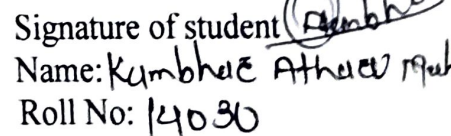 Signature of student
Name: Kumbhar Atharv
Roll No: 14030